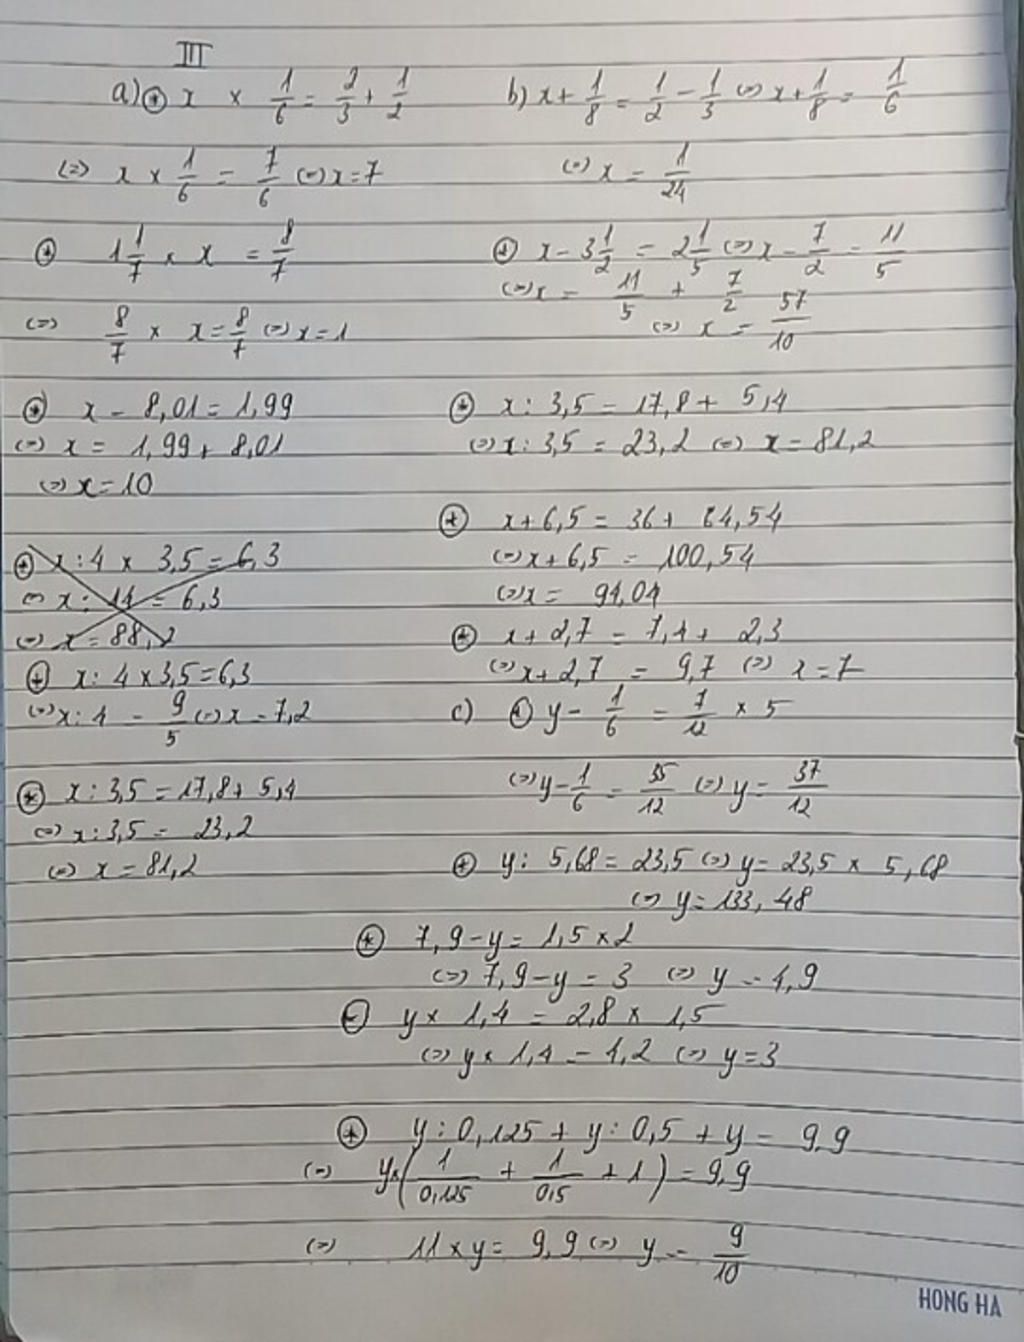 III
a) ⊕ x × 1/6 = 2/3 + 1/2
b) x + 1/8 = 1/2 - 1/3 (=) x + 1/8 = 1/6
(=) x × 1/6 = 7/6 (=) x = 7
(=) x = 1/24
⊕ 1 1/7 × x = 8/7
⊕ x - 3 1/2 = 2 1/5 (=) x - 7/2 = 11/5
(=) x = 11/5 + 7/2
(=) 8/7 × x = 8/7 (=) x = 1
(=) x = 57/10
⊕ x - 8,01 = 1,99
(=) x = 1,99 + 8,01
(=) x = 10
⊕ x : 3,5 = 17,8 + 5,4
(=) x : 3,5 = 23,2 (=) x = 81,2
⊕ x + 6,5 = 36 + 64,54
(=) x + 6,5 = 100,54
(=) x = 94,04
⊕ x : 4 × 3,5 = 6,3
(=) x : 14 = 6,3
(=) x = 88,2
⊕ x + 2,7 = 7,4 + 2,3
(=) x + 2,7 = 9,7 (=) x = 7
⊕ x : 4 × 3,5 = 6,3
(=) x : 4 = 9/5 (=) x = 7,2
c) ⊕ y - 1/6 = 7/12 × 5
(=) y - 1/6 = 35/12 (=) y = 37/12
⊕ x : 3,5 = 17,8 + 5,4
(=) x : 3,5 = 23,2
(=) x = 81,2
⊕ y : 5,68 = 23,5 (=) y = 23,5 × 5,68
(=) y = 133,48
⊕ 7,9 - y = 1,5 × 2
(=) 7,9 - y = 3 (=) y = 4,9
⊖ y × 1,4 = 2,8 × 1,5
(=) y × 1,4 = 4,2 (=) y = 3
⊕ y : 0,125 + y : 0,5 + y = 9,9
(=) y × (1/0,125 + 1/0,5 + 1) = 9,9
(=) 11 × y = 9,9 (=) y = 9/10
HONG HA